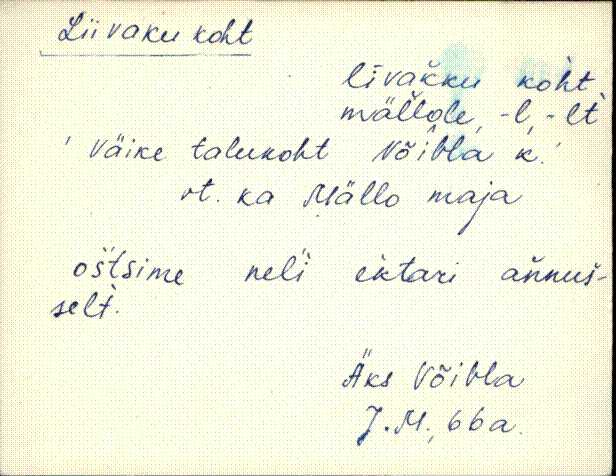 Liivaku koht
līvakku koht
mällole, -l, -lt
' väike talukoht Võibla k.'
vt. ka Mällo maja
oštsime neli ektari annus-
selt.
Äks Võibla
J.M., 66a.